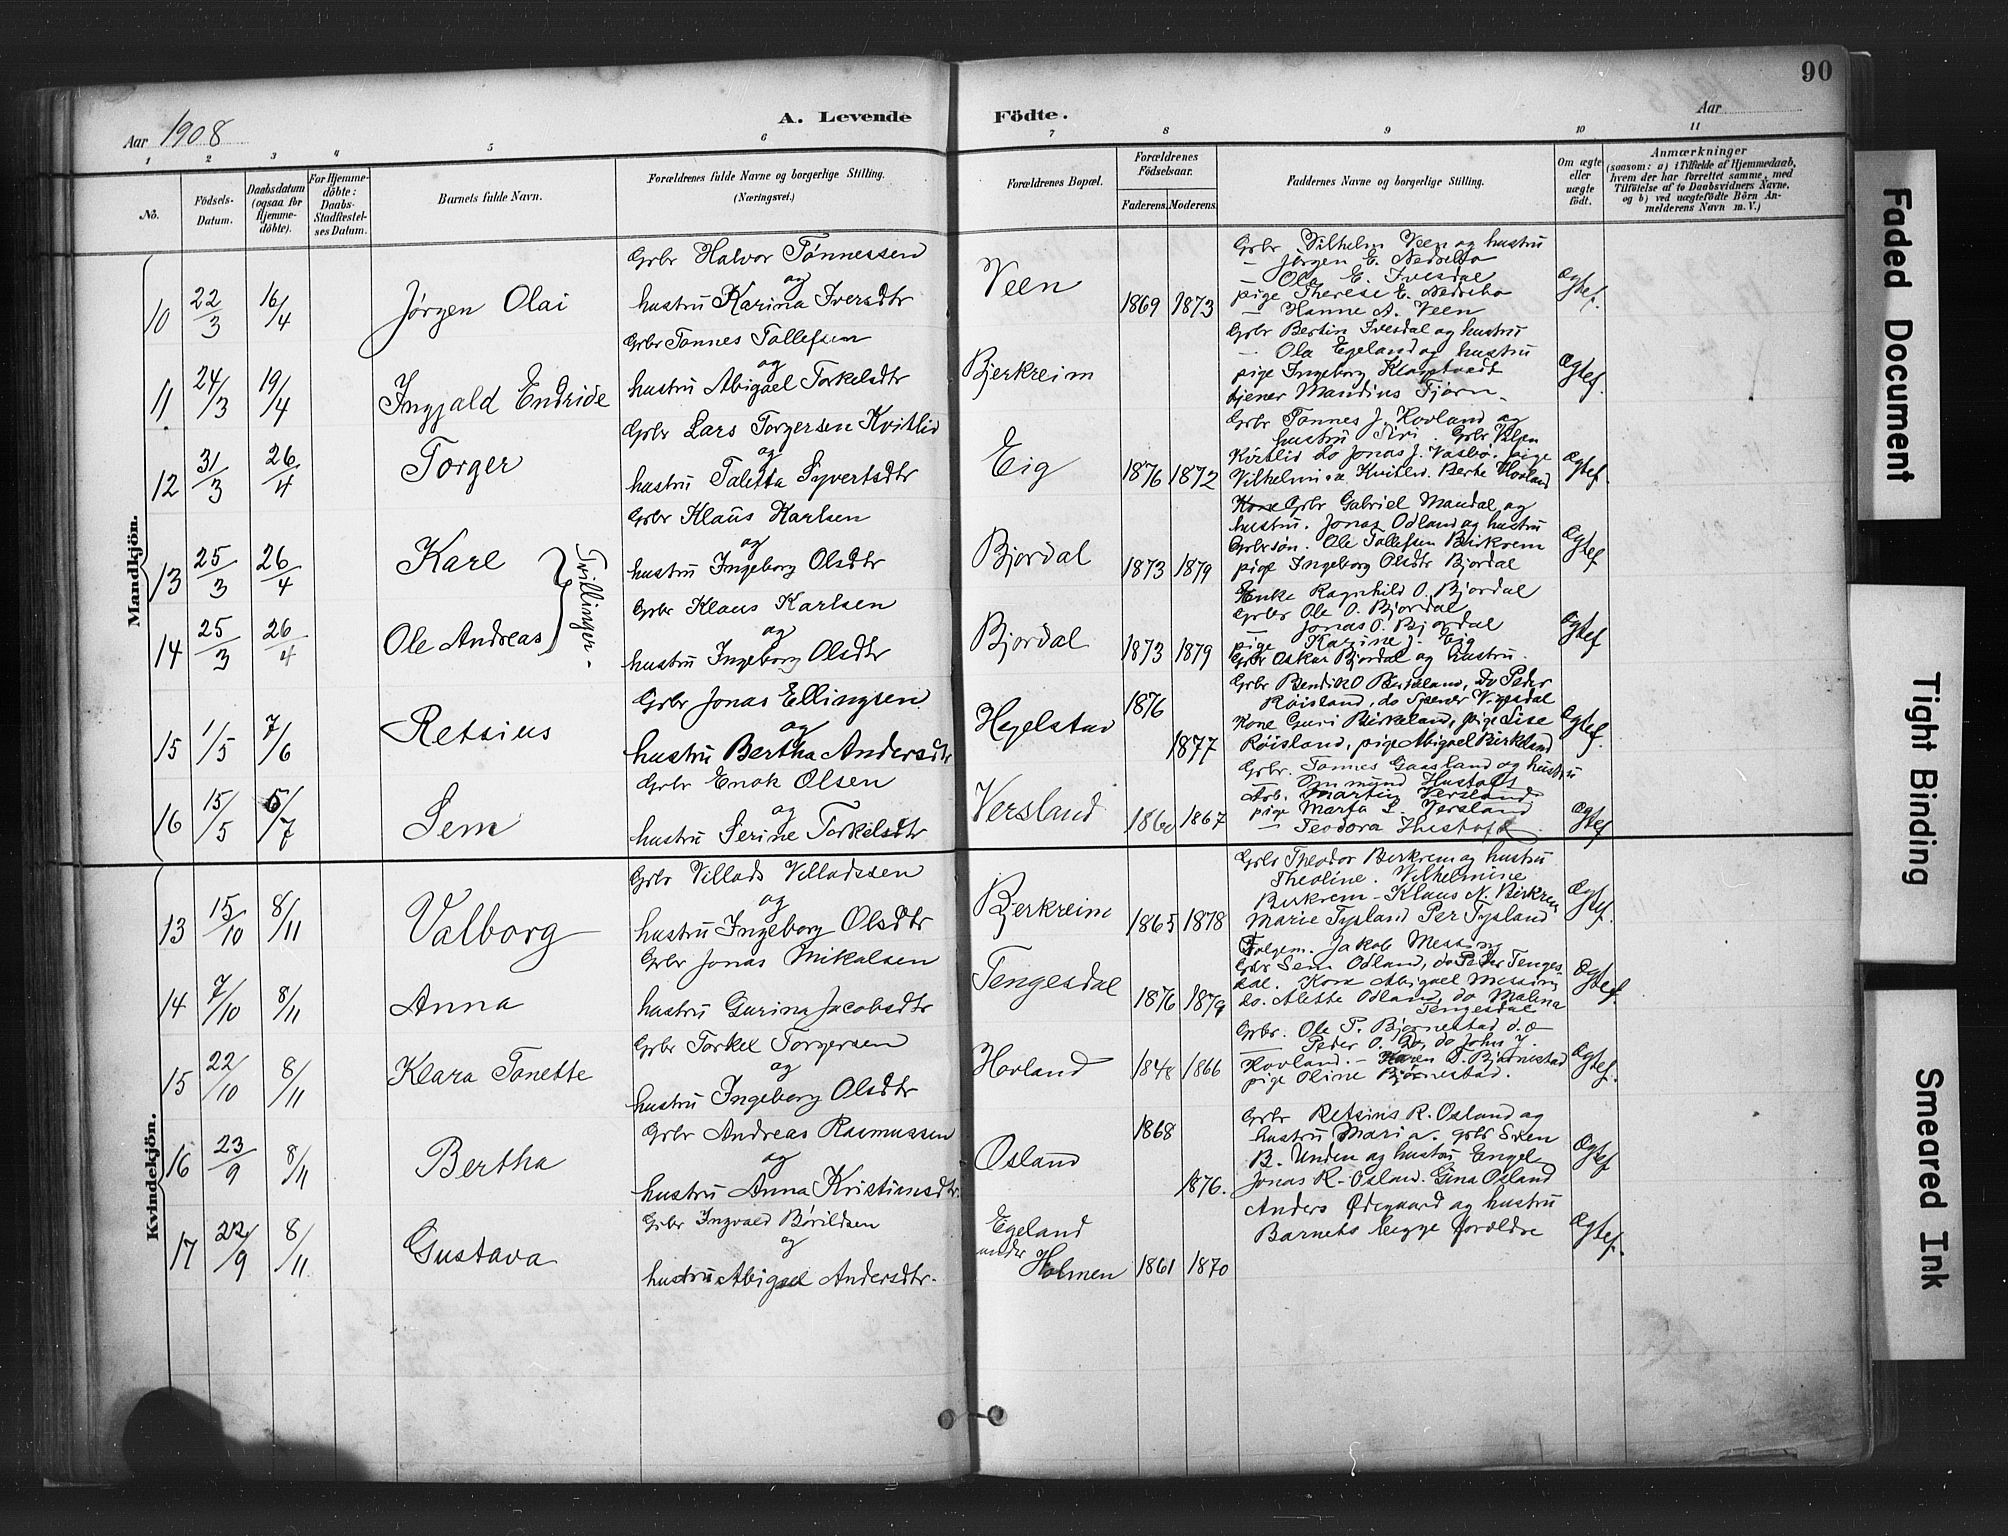 90
Aar 1908
A. Levende Födte.
Aar
1 2 3 4 5 6 7 8 9 10 11
No.
Födsels-Datum.
Daabsdatum (ogsaa for Hjemme-döbte).
For Hjemme-döbte: Daabs-Stadfæstel-ses Datum.
Barnets fulde Navn.
Forældrenes fulde Navne og borgerlige Stilling. (Næringsvei.)
Forældrenes Bopæl.
Forældrenes Födselsaar.
Faderens. Moderens.
Faddernes Navne og borgerlige Stilling.
Om ægte eller uægte födt.
Anmærkninger
(saasom: a) i Tilfælde af Hjemmedaab,
hvem der har forrettet samme, med
Tilföielse af to Daabsvidners Navne,
og b) ved uægtefödte Börn An-
melderens Navn m. V.)
Mandkjön.
10 22/3 16/4 Jørgen Olai
Grbr Halvor Tønnessen
og
hustru Karina Iversdtr
Veen 1869 1873
Grbr Vilhelm Veen og hustru
— Jörgen E. Nedrebø
— Ola E. Ivesdal
pige Therese E. Nedrebø
— Hanne A. Veen
Ægtef.
11 24/3 19/4 Ingjald Endride
Grbr Tønnes Tollefsen
og
hustru Abigael Torkelsdtr
Bjerkreim
Grbr Bertin Ivesdal og hustru
— Ola Egeland og hustru
pige Ingeborg
tjener Mandius Fjørn
Ægtef.
12 31/3 26/4 Torger
Grbr Lars Torgersen Kvitlid
og
hustru Taletta Syvertsdtr
Eig 1876 1872
Grbr Tønnes J. Hovland og
hustru Siri. Grbr
do Jonas J. pige
Vilhelmine Kvitlid. Berte Hovland
Ægtef.
13 25/3 26/4 Karl
Tvillinger.
Grbr Klaus Karlsen
og
hustru Ingeborg Olsdtr
Bjordal 1873 1879
Kone Grbr Gabriel Mandal og
hustru. Jonas Odland og hustru
Grbrsøn. Ole Tollefsen Birkrem
pige Ingeborg Olsdtr Bjordal
Ægtef
14 25/3 26/4 Ole Andreas
Grbr Klaus Karlsen
og
hustru Ingeborg Olsdtr
Bjordal 1873 1879
Enke Ragnhild O. Bjordal
Grbr Ole O. Bjordal
— Jonas O. Bjordal
pige Karine J. Eig
Grbr Oskar Bjordal og hustru.
Ægtef
15 1/5 7/6 Retsius
Grbr Jonas Ellingsen
og
hustru Bertha Andersdtr
Hegelstad 1876 1877
Grbr Bendik O Birkeland, do Peder
Røisland, do
Kone Guri Birkeland, pige Lise
Røisland, pige Abigael Birkeland
Ægtef.
16 15/5 5/7 Sem
Grbr Enok Olsen
og
hustru Serine Torkelsdtr
Versland 1860 1867
Grbr. Tønnes Gaasland og hustru
— Hustoft
Arb. Martin Versland
pige Marta L. Versland
— Teodora Hustoft
Ægtef
Kvindekjön.
13 15/10 8/11 Valborg
Grbr Villads Villadssen
og
hustru Ingeborg Olsdtr
Bjerkreim 1865 1878
Grbr Theodor Berkrem og hustru
Theoline. Vilhelmine
Birkrem - Klaus N. Birkrem
Marie Tysland Per Tysland
Ægtef.
14 7/10 8/11 Anna
Grbr Jonas Mikalsen
hustru Gurina Jacobsdtr
Tengesdal 1876 1879
Jakob Messing
Grbr Sem Odland, do Peder Tenges-
dal. Kone Abigael Messing
do. Alette Odland, do Malena
Tengesdal
Ægtef.
15 22/10 8/11 Klara Tonette
Grbr Torkel Torgersen
og
hustru Ingeborg Olsdtr
Hovland 1848 1866
Grbr. Ole P. Bjørnestad
— Peder O. Do, do John J.
Hovland. — Karen O. Bjørnestad
pige Oline Bjørnestad.
Ægtef.
16 23/9 8/11 Bertha
Grbr Andreas Rasmussen
og
hustru Anna Kristiansdtr.
Osland 1868 1876.
Grbr Retsius R. Osland og
hustru Maria. grbr Sven
B. Unden og hustru Engel
Jonas R. Osland. Gina Osland
Ægtef
17 22/9 8/11 Gustava
Grbr Ingvald Børildsen
og
hustru Abigael Andersdtr.
Egeland
under
Holmen 1861 1870
Anders Ødegaard og hustru
Barnets begge forældre
Ægtef.
Faded Document
Tight Binding
Smeared Ink